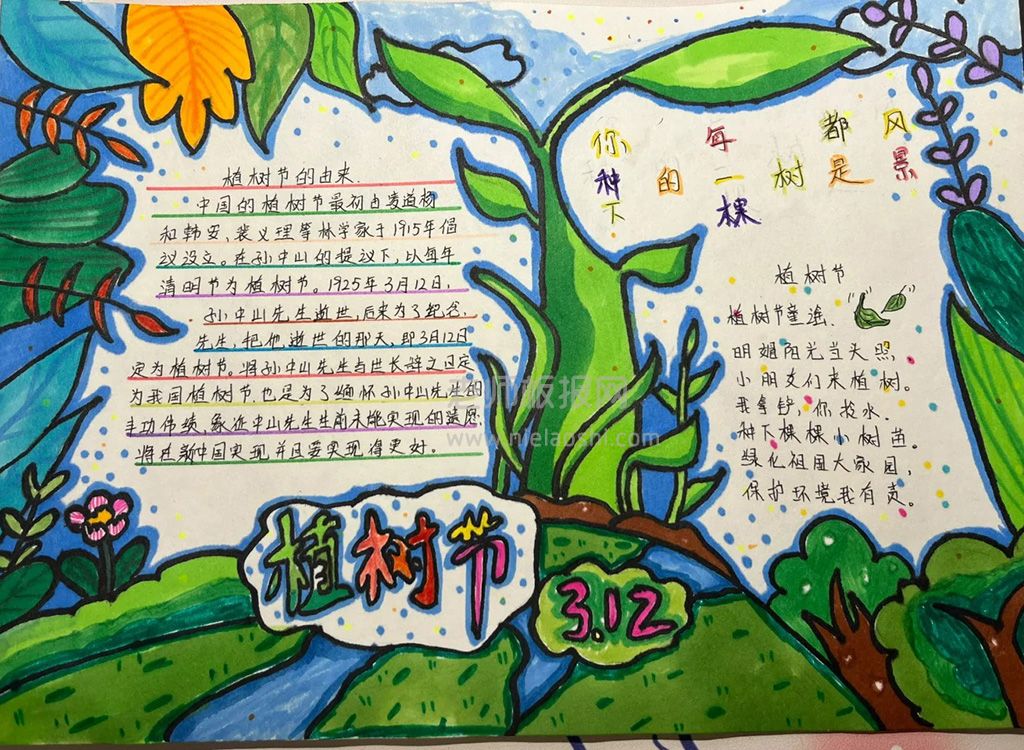 植树节的由来.
中国的植树节最初由凌道扬
和韩安、裴义理等林学家于1915年倡
议设立。在孙中山的提议下,以每年
清明节为植树节。1925年3月12日,
孙中山先生逝世,后来为了纪念,
先生,把他逝世的那天,即3月12日
定为植树节。将孙中山先生与世长辞之日定
为我国植树节也是为了缅怀孙中山先生的
丰功伟绩,象征中山先生生前未能实现的遗愿,
将在新中国实现并且要实现得更好。
你种下的每一棵树都是风景
植树节
植树节童谣.
明媚阳光当天照,
小朋友们来植树。
我拿锹,你捡水.
种下棵棵小树苗。
绿化祖国大家园,
保护环境我有责。
老师板报网
www.nielaoshi.com
植树节
3.12